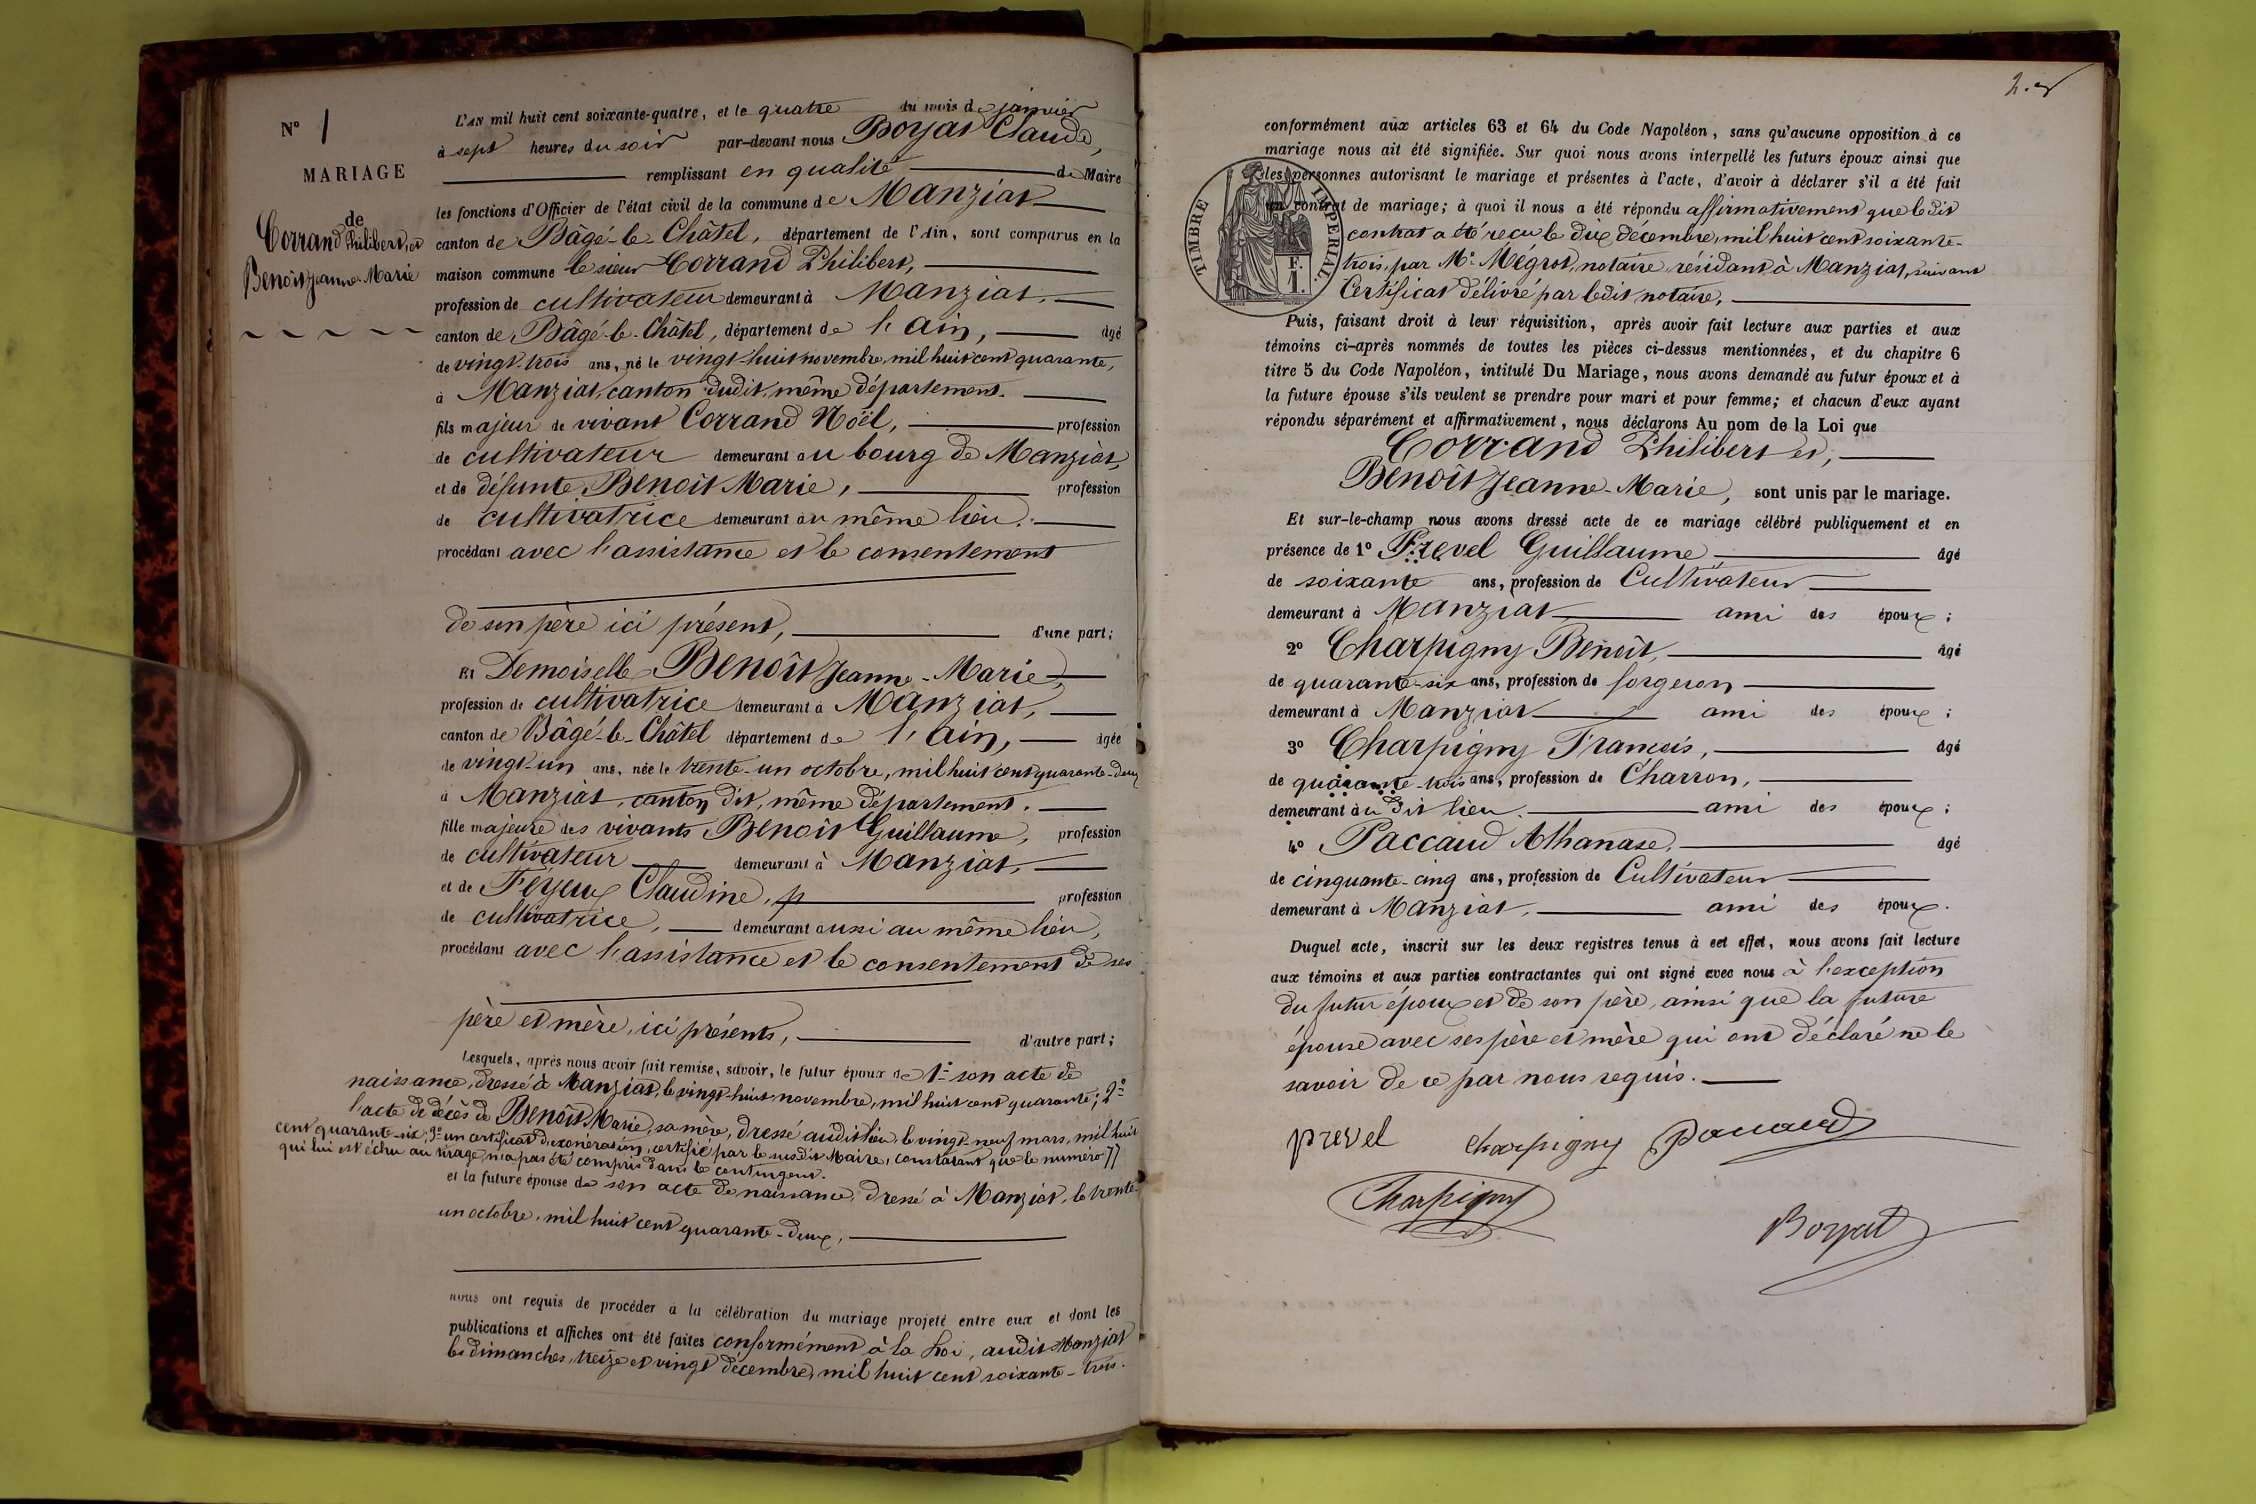 N° 1
MARIAGE
de
Corrand Philibert, et
Benoît Jeanne-Marie
L'AN mil huit cent soixante-quatre, et le quatre du mois de janvier
à sept heures du soir par-devant nous Boyat Claude,
remplissant en qualité de Maire
les fonctions d'Officier de l'état civil de la commune de Manziat
canton de Bâgé-le-Châtel, département de l'Ain, sont comparus en la
maison commune le sieur Corrand Philibert,
profession de cultivateur demeurant à Manziat,
canton de Bâgé-le-Châtel, département de l'Ain, âgé
de vingt-trois ans, né le vingt-huit novembre, mil huit cent quarante,
à Manziat, canton dudit, même département.
fils majeur de vivant Corrand Noël, profession
de cultivateur demeurant au bourg de Manziat,
et de défunte Benoît Marie, profession
de cultivatrice demeurant au même lieu.
procédant avec l'assistance et le consentement
de son père ici présent, d'une part;
Et Demoiselle Benoît Jeanne-Marie,
profession de cultivatrice demeurant à Manziat,
canton de Bâgé-le-Châtel département de l'Ain, âgée
de vingt-un ans, née le trente-un octobre, mil huit cent quarante-deux
à Manziat, canton dit, même département.
fille majeure des vivants Benoît Guillaume, profession
de cultivateur demeurant à Manziat,
et de Féyeux Claudine, profession
de cultivatrice, demeurant aussi au même lieu,
procédant avec l'assistance et le consentement de ses
père et mère, ici présents, d'autre part;
Lesquels, après nous avoir fait remise, savoir, le futur époux de 1° son acte de
naissance, dressé à Manziat, le vingt-huit novembre, mil huit cent quarante; 2°
l'acte de décès de Benoît Marie, sa mère, dressé audit lieu, le vingt-neuf mars, mil huit
cent quarante-six; 3° un certificat d'exonération, certifié par le susdit Maire, constatant que le numéro 77
qui lui est échu au tirage, n'a pas été compris dans le contingent.
et la future épouse de son acte de naissance, dressé à Manziat, le trente-
un octobre, mil huit cent quarante-deux,
nous ont requis de procéder à la célébration du mariage projeté entre eux et dont les
publications et affiches ont été faites conformément à la Loi, audit Manziat
les dimanches, treize et vingt décembre, mil huit cent soixante-trois.
2.
conformément aux articles 63 et 64 du Code Napoléon, sans qu'aucune opposition à ce
mariage nous ait été signifiée. Sur quoi nous avons interpellé les futurs époux ainsi que
les personnes autorisant le mariage et présentes à l'acte, d'avoir à déclarer s'il a été fait
un contrat de mariage; à quoi il nous a été répondu affirmativement que ledit
contrat a été reçu le dix décembre, mil huit cent soixante-
trois, par Me Mégrot, notaire, résidant à Manziat, suivant
Certificat délivré par ledit notaire,
TIMBRE IMPERIAL
F.
1.
Puis, faisant droit à leur réquisition, après avoir fait lecture aux parties et aux
témoins ci-après nommés de toutes les pièces ci-dessus mentionnées, et du chapitre 6
titre 5 du Code Napoléon, intitulé Du Mariage, nous avons demandé au futur époux et à
la future épouse s'ils veulent se prendre pour mari et pour femme; et chacun d'eux ayant
répondu séparément et affirmativement, nous déclarons Au nom de la Loi que
Corrand Philibert et,
Benoît Jeanne-Marie, sont unis par le mariage.
Et sur-le-champ nous avons dressé acte de ce mariage célébré publiquement et en
présence de 1° Prevel Guillaume âgé
de soixante ans, profession de Cultivateur
demeurant à Manziat ami des époux;
2° Charpigny Benoît, âgé
de quarante-six ans, profession de forgeron
demeurant à Manziat ami des époux;
3° Charpigny François, âgé
de quarante-trois ans, profession de Charron,
demeurant au dit lieu. ami des époux;
4° Paccaud Athanase, âgé
de cinquante-cinq ans, profession de Cultivateur
demeurant à Manziat, ami des époux.
Duquel acte, inscrit sur les deux registres tenus à cet effet, nous avons fait lecture
aux témoins et aux parties contractantes qui ont signé avec nous à l'exception
du futur époux et de son père, ainsi que la future
épouse avec ses père et mère qui ont déclaré ne le
savoir de ce par nous requis.
prevel Charpigny Paccaud
Charpigny
Boyat